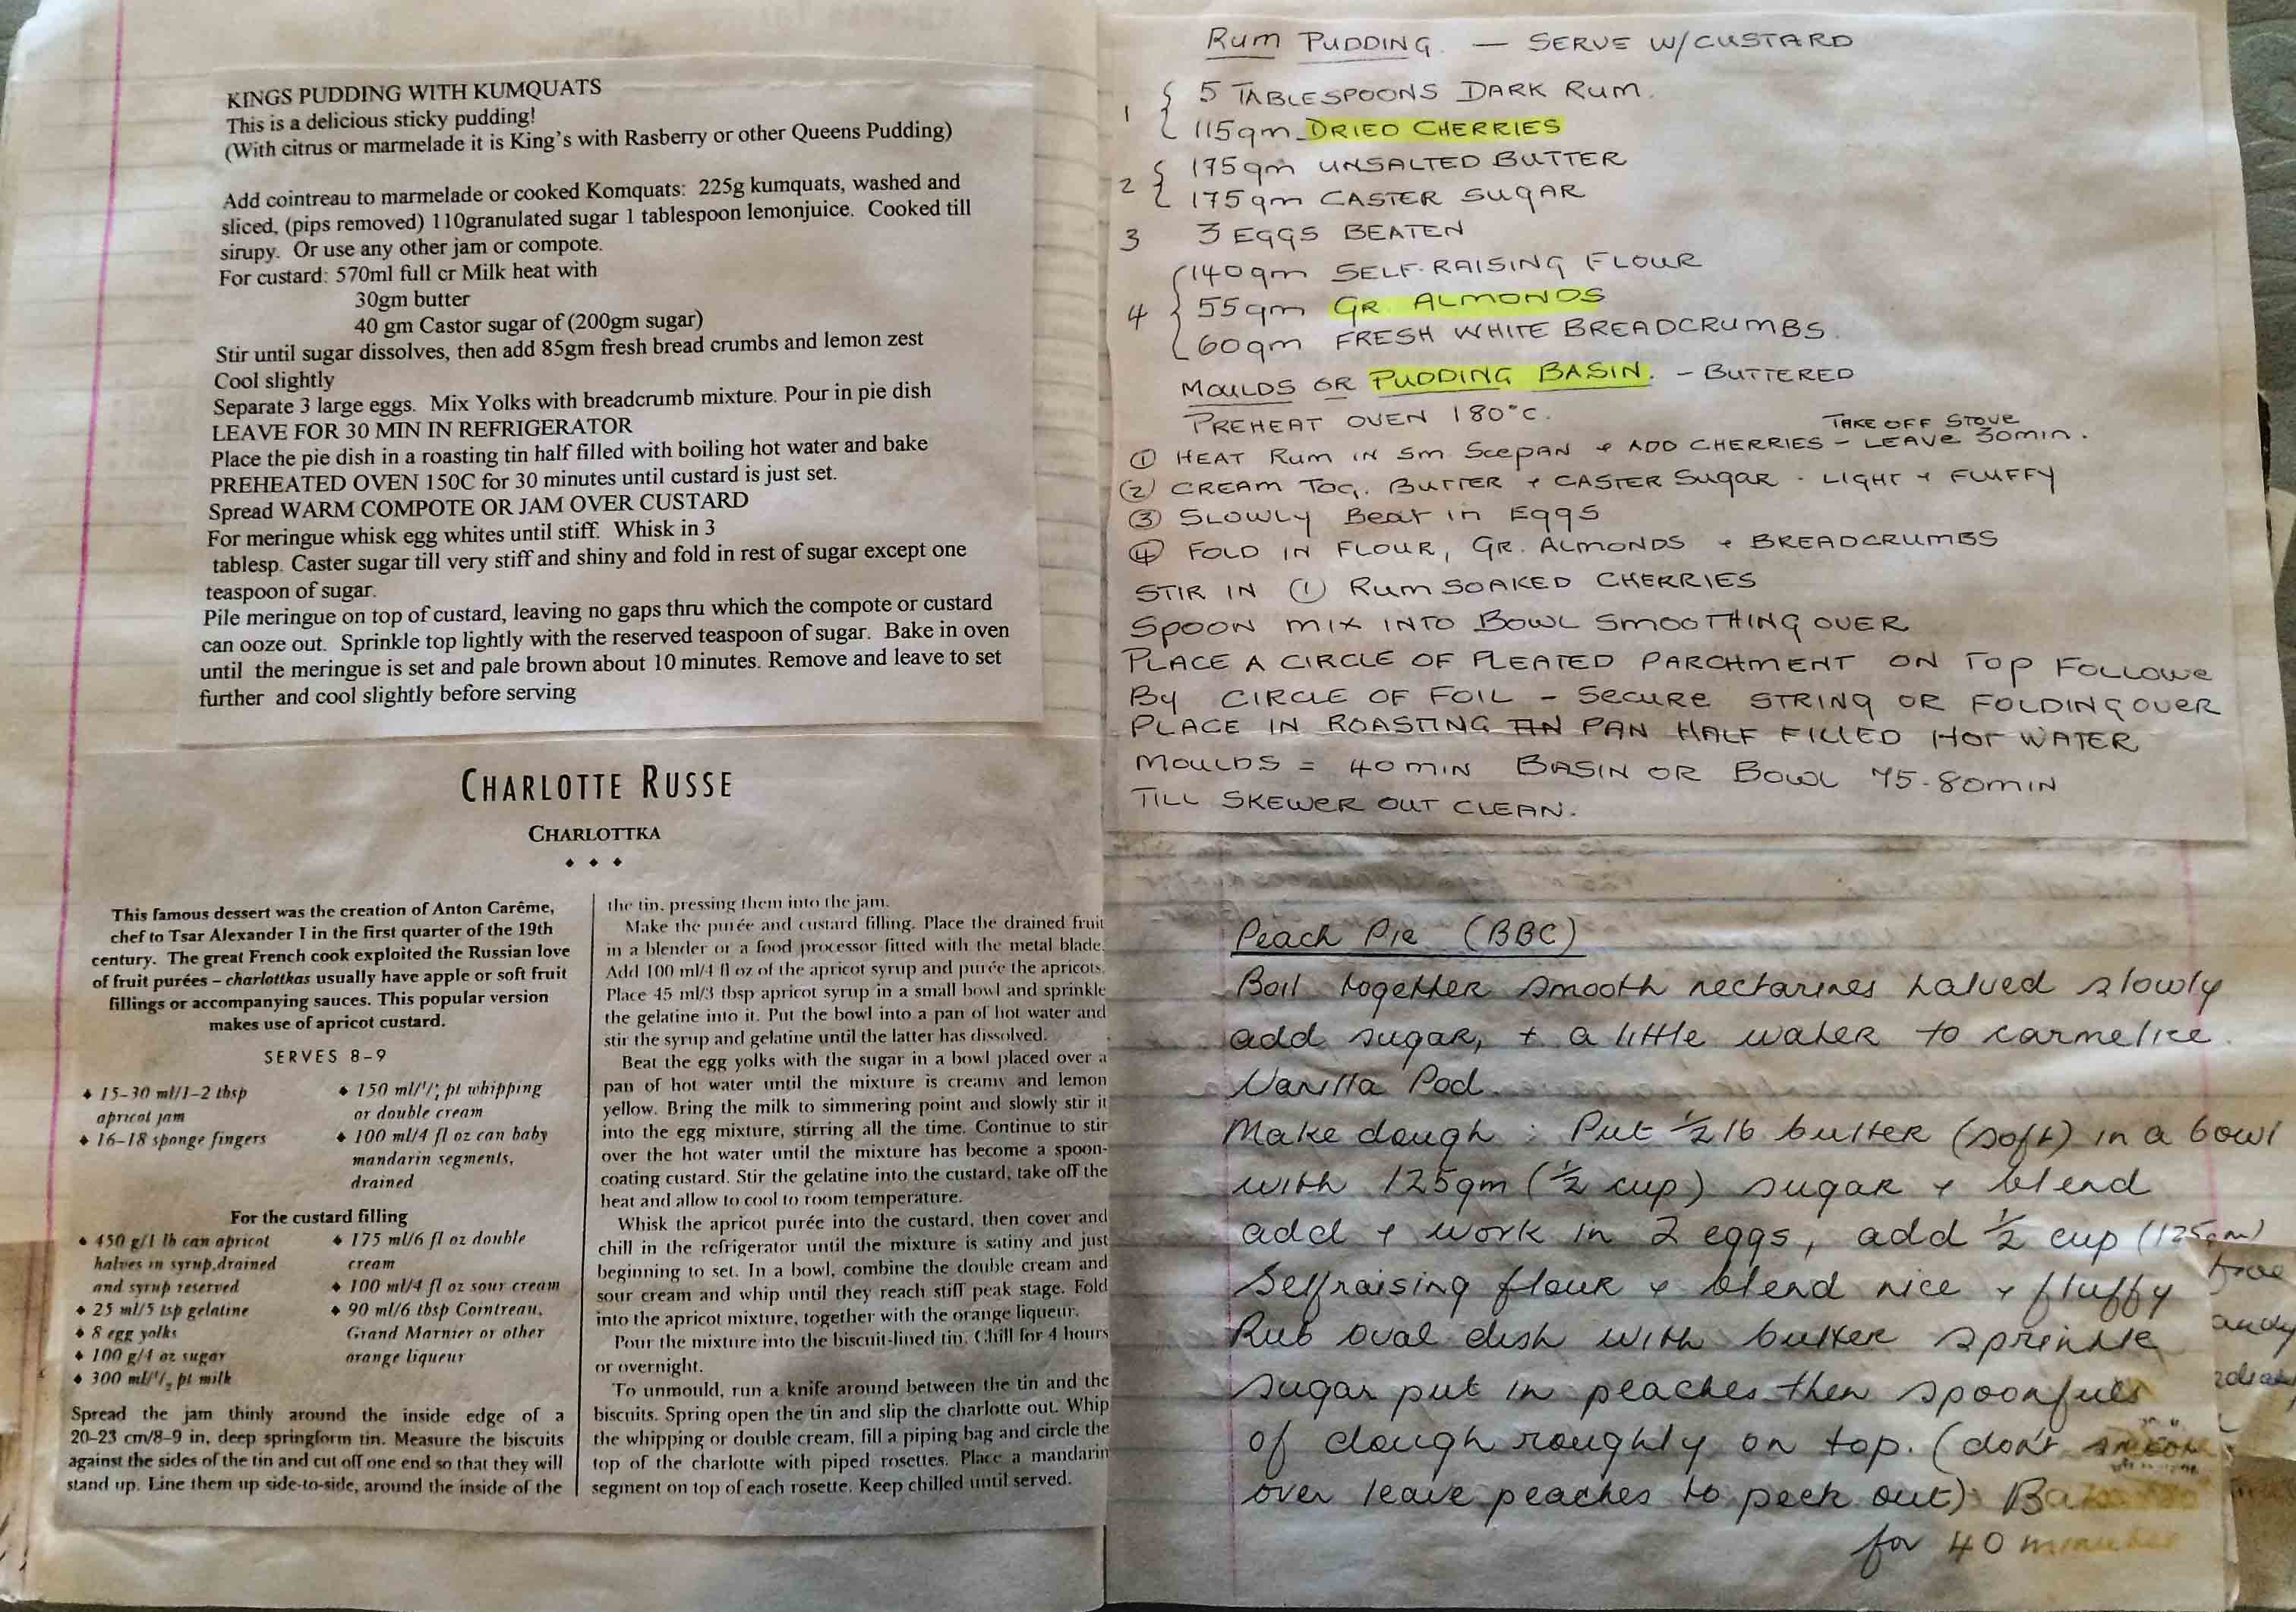 KINGS PUDDING WITH KUMQUATS
This is a delicious sticky pudding!
(With citrus or marmelade it is King's with Rasberry or other Queens Pudding)
Add cointreau to marmelade or cooked Komquats: 225g kumquats, washed and
sliced, (pips removed) 110granulated sugar 1 tablespoon lemonjuice. Cooked till
sirupy. Or use any other jam or compote.
For custard: 570ml full cr Milk heat with
30gm butter
40 gm Castor sugar of (200gm sugar)
Stir until sugar dissolves, then add 85gm fresh bread crumbs and lemon zest
Cool slightly
Separate 3 large eggs. Mix Yolks with breadcrumb mixture. Pour in pie dish
LEAVE FOR 30 MIN IN REFRIGERATOR
Place the pie dish in a roasting tin half filled with boiling hot water and bake
PREHEATED OVEN 150C for 30 minutes until custard is just set.
Spread WARM COMPOTE OR JAM OVER CUSTARD
For meringue whisk egg whites until stiff. Whisk in 3
tablesp. Caster sugar till very stiff and shiny and fold in rest of sugar except one
teaspoon of sugar.
Pile meringue on top of custard, leaving no gaps thru which the compote or custard
can ooze out. Sprinkle top lightly with the reserved teaspoon of sugar. Bake in oven
until the meringue is set and pale brown about 10 minutes. Remove and leave to set
further and cool slightly before serving
CHARLOTTE RUSSE
CHARLOTTKA
This famous dessert was the creation of Anton Carême,
chef to Tsar Alexander I in the first quarter of the 19th
century. The great French cook exploited the Russian love
of fruit purées – charlottkas usually have apple or soft fruit
fillings or accompanying sauces. This popular version
makes use of apricot custard.
SERVES 8–9
♦ 15–30 ml/1–2 tbsp
apricot jam
♦ 16–18 sponge fingers
♦ 150 ml/¼ pt whipping
or double cream
♦ 100 ml/4 fl oz can baby
mandarin segments,
drained
For the custard filling
♦ 450 g/1 lb can apricot
halves in syrup,drained
and syrup reserved
♦ 25 ml/5 tsp gelatine
♦ 8 egg yolks
♦ 100 g/4 oz sugar
♦ 300 ml/½ pt milk
♦ 175 ml/6 fl oz double
cream
♦ 100 ml/4 fl oz sour cream
♦ 90 ml/6 tbsp Cointreau,
Grand Marnier or other
orange liqueur
Spread the jam thinly around the inside edge of a
20–23 cm/8–9 in, deep springform tin. Measure the biscuits
against the sides of the tin and cut off one end so that they will
stand up. Line them up side-to-side, around the inside of the
the tin, pressing them into the jam.
Make the purée and custard filling. Place the drained fruit
in a blender or a food processor fitted with the metal blade.
Add 100 ml/4 fl oz of the apricot syrup and purée the apricots.
Place 45 ml/3 tbsp apricot syrup in a small bowl and sprinkle
the gelatine into it. Put the bowl into a pan of hot water and
stir the syrup and gelatine until the latter has dissolved.
Beat the egg yolks with the sugar in a bowl placed over a
pan of hot water until the mixture is creamy and lemon
yellow. Bring the milk to simmering point and slowly stir it
into the egg mixture, stirring all the time. Continue to stir
over the hot water until the mixture has become a spoon-
coating custard. Stir the gelatine into the custard, take off the
heat and allow to cool to room temperature.
Whisk the apricot purée into the custard, then cover and
chill in the refrigerator until the mixture is satiny and just
beginning to set. In a bowl, combine the double cream and
sour cream and whip until they reach stiff peak stage. Fold
into the apricot mixture, together with the orange liqueur.
Pour the mixture into the biscuit-lined tin. Chill for 4 hours
or overnight.
To unmould, run a knife around between the tin and the
biscuits. Spring open the tin and slip the charlotte out. Whip
the whipping or double cream, fill a piping bag and circle the
top of the charlotte with piped rosettes. Place a mandarin
segment on top of each rosette. Keep chilled until served.
RUM PUDDING – SERVE W/CUSTARD
1 { 5 TABLESPOONS DARK RUM.
115gm DRIED CHERRIES
2 { 175gm UNSALTED BUTTER
175gm CASTER SUGAR
3 3 EGGS BEATEN
4 { 140gm SELF-RAISING FLOUR
55gm GR. ALMONDS
60gm FRESH WHITE BREADCRUMBS.
MOULDS OR PUDDING BASIN. – BUTTERED
PREHEAT OVEN 180°C.
TAKE OFF STOVE
① HEAT RUM IN SM SCEPAN + ADD CHERRIES – LEAVE 30MIN.
② CREAM TOG. BUTTER + CASTER SUGAR - LIGHT + FLUFFY
③ SLOWLY BEAT IN EGGS
④ FOLD IN FLOUR, GR. ALMONDS + BREADCRUMBS
STIR IN ① RUM SOAKED CHERRIES
SPOON MIX INTO BOWL SMOOTHING OVER
PLACE A CIRCLE OF PLEATED PARCHMENT ON TOP FOLLOWE
BY CIRCLE OF FOIL – SECURE STRING OR FOLDING OVER
PLACE IN ROASTING PAN HALF FILLED HOT WATER
MOULDS = 40MIN BASIN OR BOWL 75-80MIN
TILL SKEWER OUT CLEAN.
Peach Pie (BBC)
Boil together smooth nectarines halved slowly
add sugar, + a little water to carmelice.
Vanilla Pod.
Make dough : Put ½ lb butter (soft) in a bowl
with 125gm (½ cup) sugar + blend
add + work in 2 eggs, add ½ cup (125gm)
Selfraising flour + blend nice + fluffy
Rub oval dish with butter sprinkle
sugar put in peaches then spoonfuls
of dough roughly on top. (don't
over leave peaches to peek out)
for 40 minutes